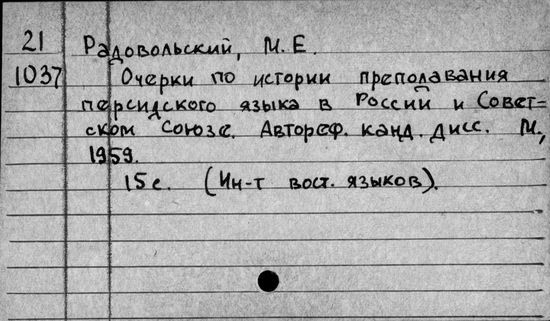 21 Радовольский, М. Е.
1037 Очерки по истории преподавания
персидского языка в России и Совет=
ском Союзе. Автореф. канд. дисс. М.,
1959.
15 с. (Ин-т вост. языков).